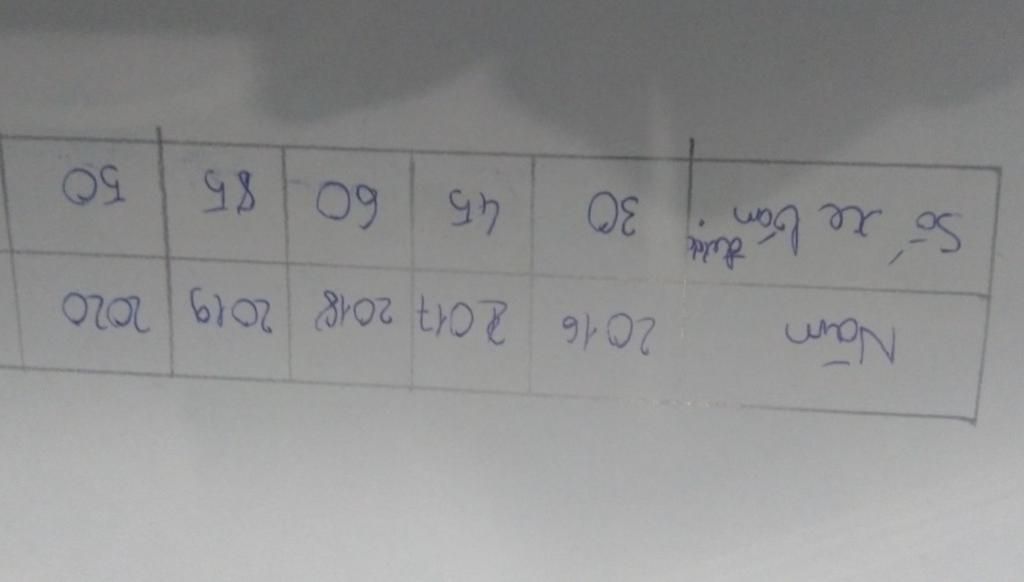 Năm 2016 2017 2018 2019 2020
Số xe bán được 30 45 60 85 50